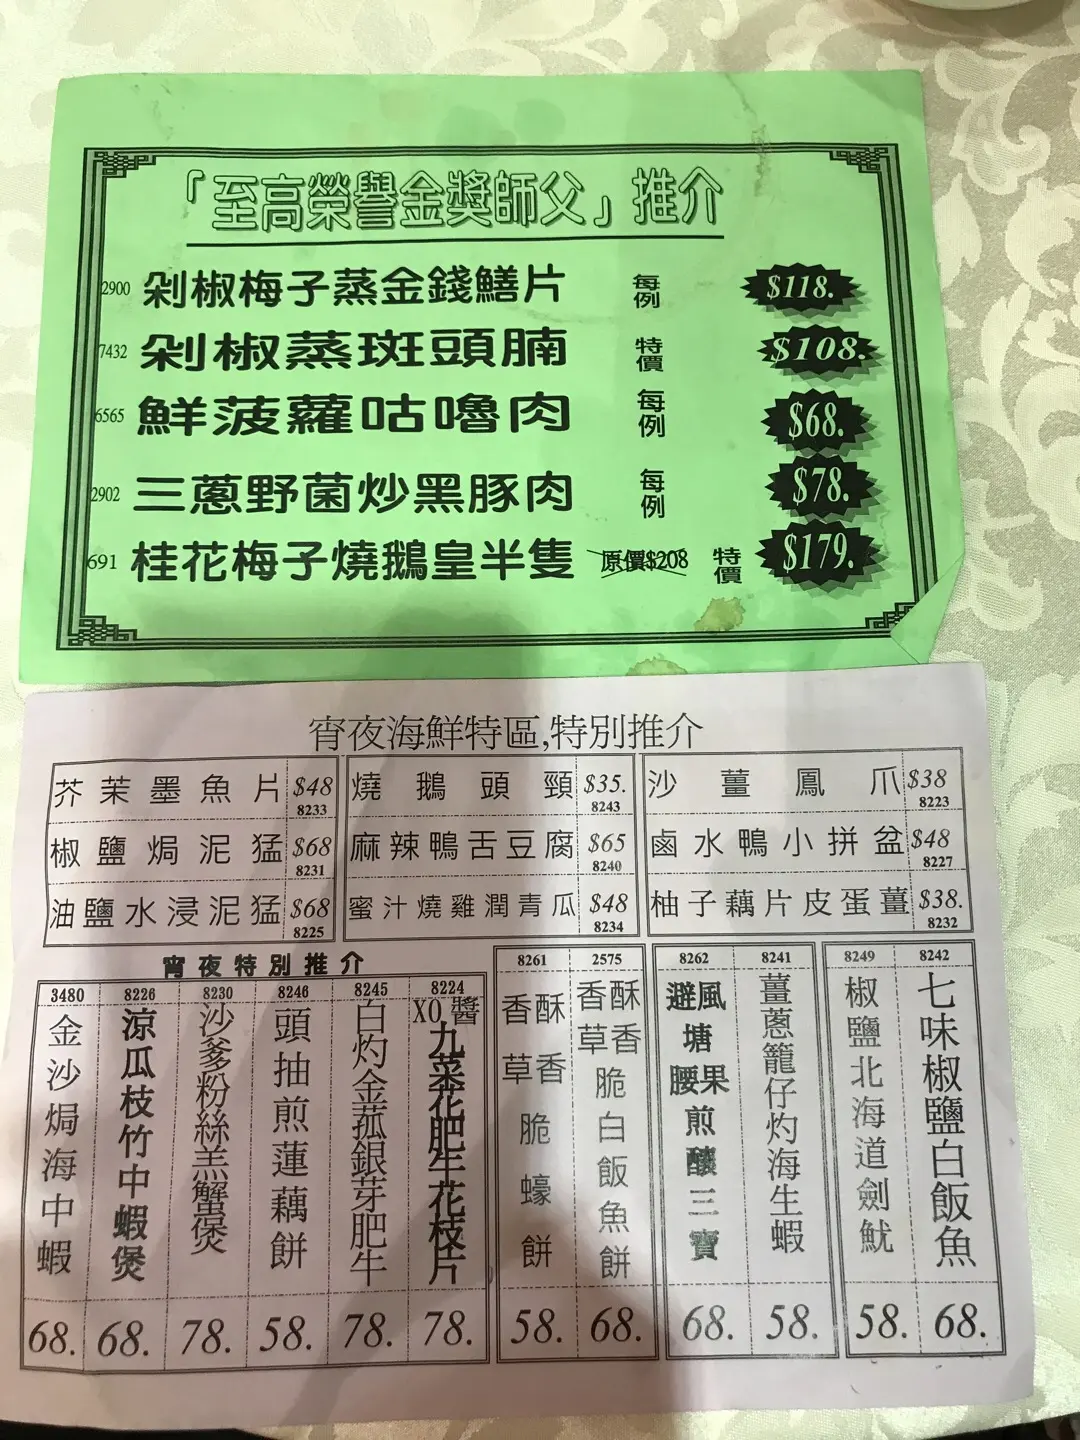 「至高榮譽金獎師父」推介
2900 剁椒梅子蒸金錢鱔片 每例 $118.
7432 剁椒蒸斑頭腩 特價 $108.
6565 鮮菠蘿咕嚕肉 每例 $68.
2902 三蔥野菌炒黑豚肉 每例 $78.
691 桂花梅子燒鵝皇半隻 原價$208 特價 $179.
宵夜海鮮特區,特別推介
芥茉墨魚片 $48 8233
燒鵝頭頸 $35. 8243
沙薑鳳爪 $38 8223
椒鹽焗泥猛 $68 8231
麻辣鴨舌豆腐 $65 8240
鹵水鴨小拼盆 $48 8227
油鹽水浸泥猛 $68 8225
蜜汁燒雞潤青瓜 $48 8234
柚子藕片皮蛋薑 $38. 8232
宵夜特別推介
3480 金沙焗海中蝦 68.
8226 涼瓜枝竹中蝦煲 68.
8230 沙爹粉絲羔蟹煲 78.
8246 頭抽煎蓮藕餅 58.
8245 白灼金菰銀芽肥牛 78.
8224 XO醬九菜花肥牛花枝片 78.
8261 香酥草香脆蠔餅 58.
2575 香酥草香脆白飯魚餅 68.
8262 避風塘腰果煎釀三寶 68.
8241 薑蔥籠仔灼海生蝦 58.
8249 椒鹽北海道劍魷 58.
8242 七味椒鹽白飯魚 68.